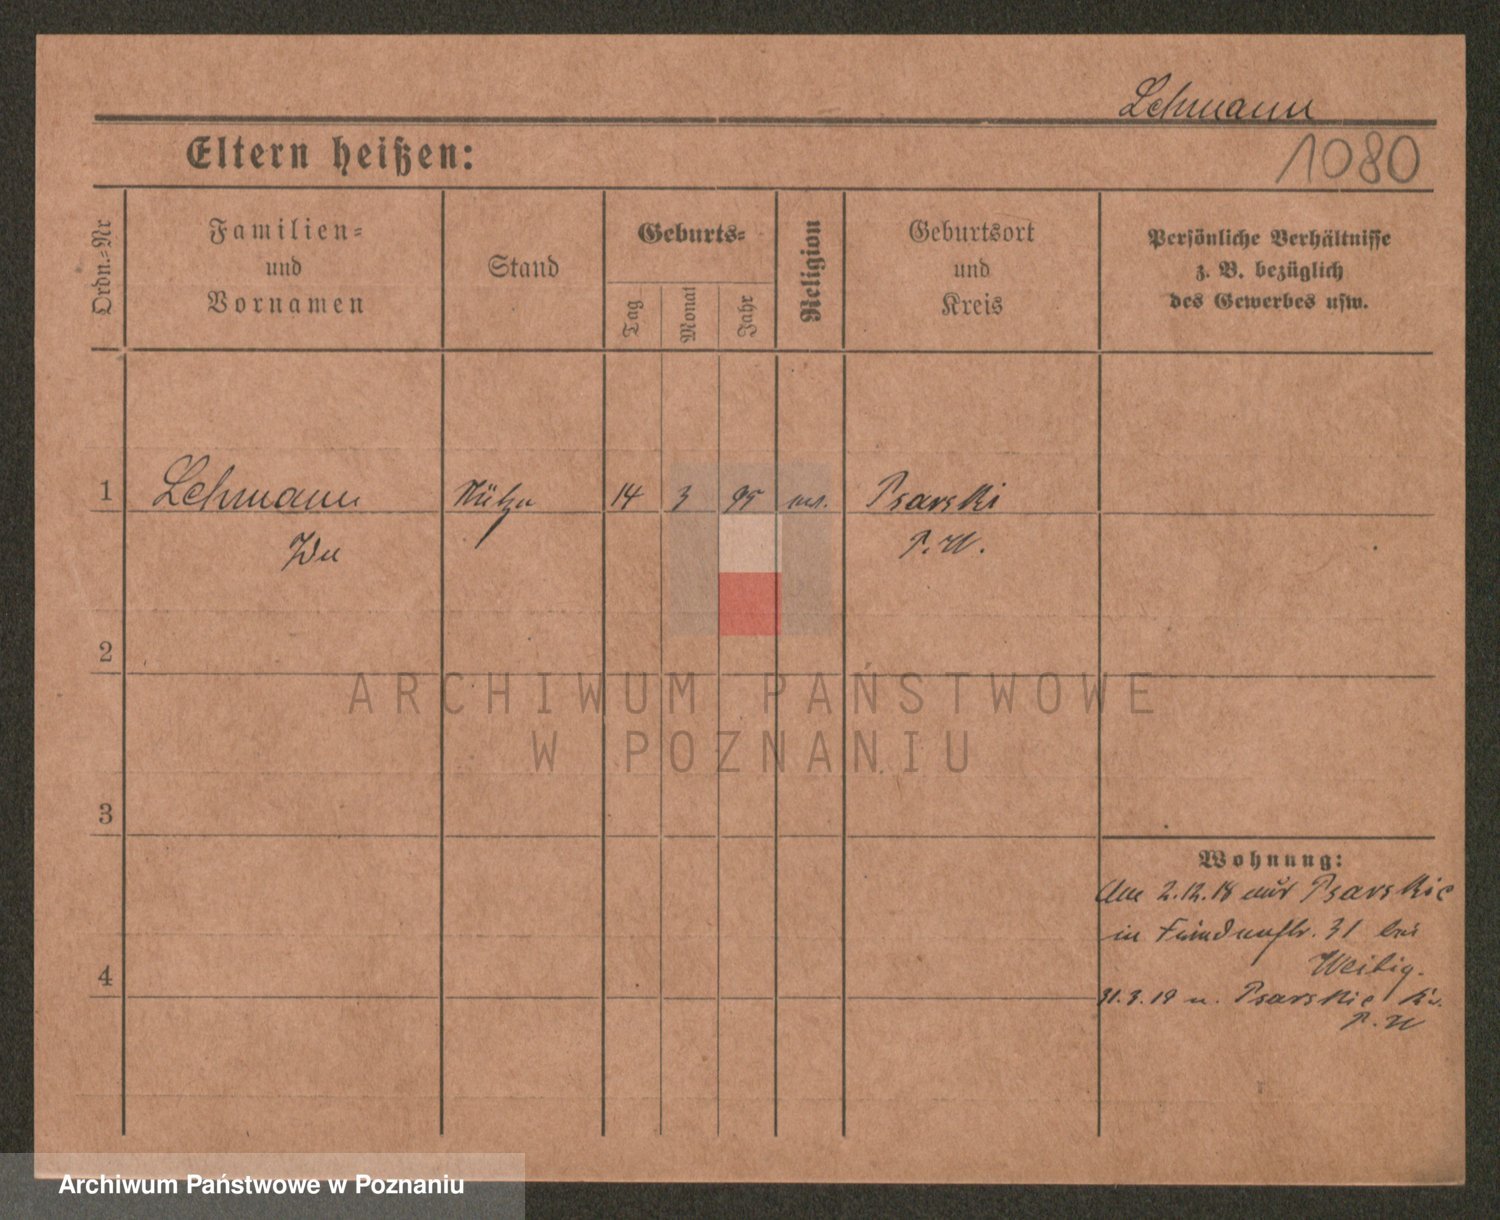 Lehmann
Eltern heißen:
1080
Ordn.-Nr
Familien-
und
Vornamen
Stand
Geburts-
Tag
Monat
Jahr
Religion
Geburtsort
und
Kreis
Persönliche Verhältnisse
z. B. bezüglich
des Gewerbes usw.
1
Lehmann
14
3
95
Psarski
P. W.
2
ARCHIWUM PAŃSTWOWE
W POZNANIU
3
Wohnung:
2.12.18 aus Psarskie
in 31 bei
4
31.3.19 n. Psarskie Kr.
P. W
Archiwum Państwowe w Poznaniu